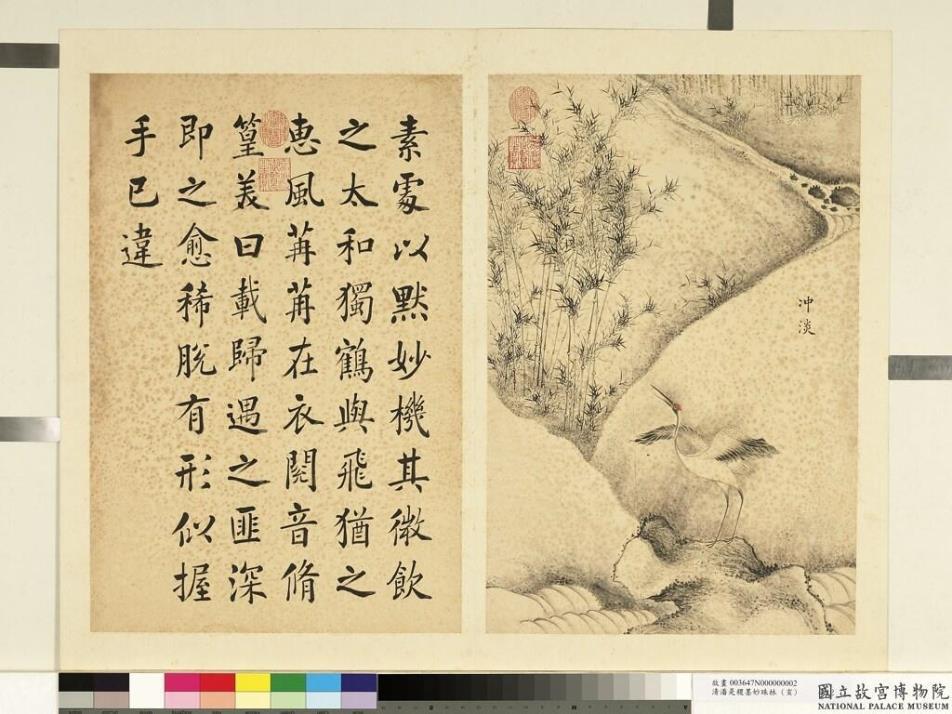 冲淡
素處以默妙機其微飲
之太和獨鶴與飛猶之
恵風苒苒在衣閱音脩
篁美曰載歸遇之匪深
即之愈稀脫有形似握
手已違
故畫 003647N000000002
清潘是稷墨妙珠林（亥）
國立故宮博物院
NATIONAL PALACE MUSEUM